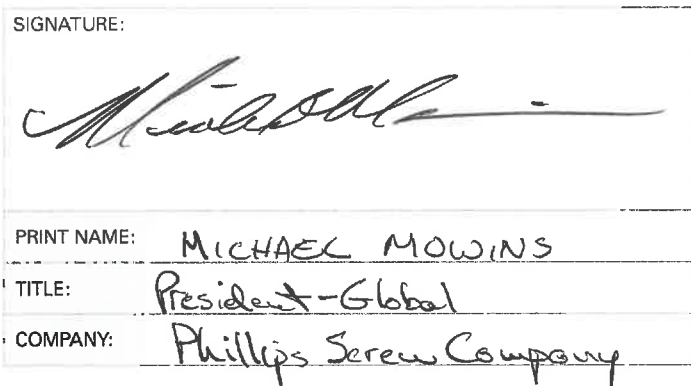 SIGNATURE:
PRINT NAME: MICHAEL MOWINS
TITLE: President-Global
COMPANY: Phillips Screw Company